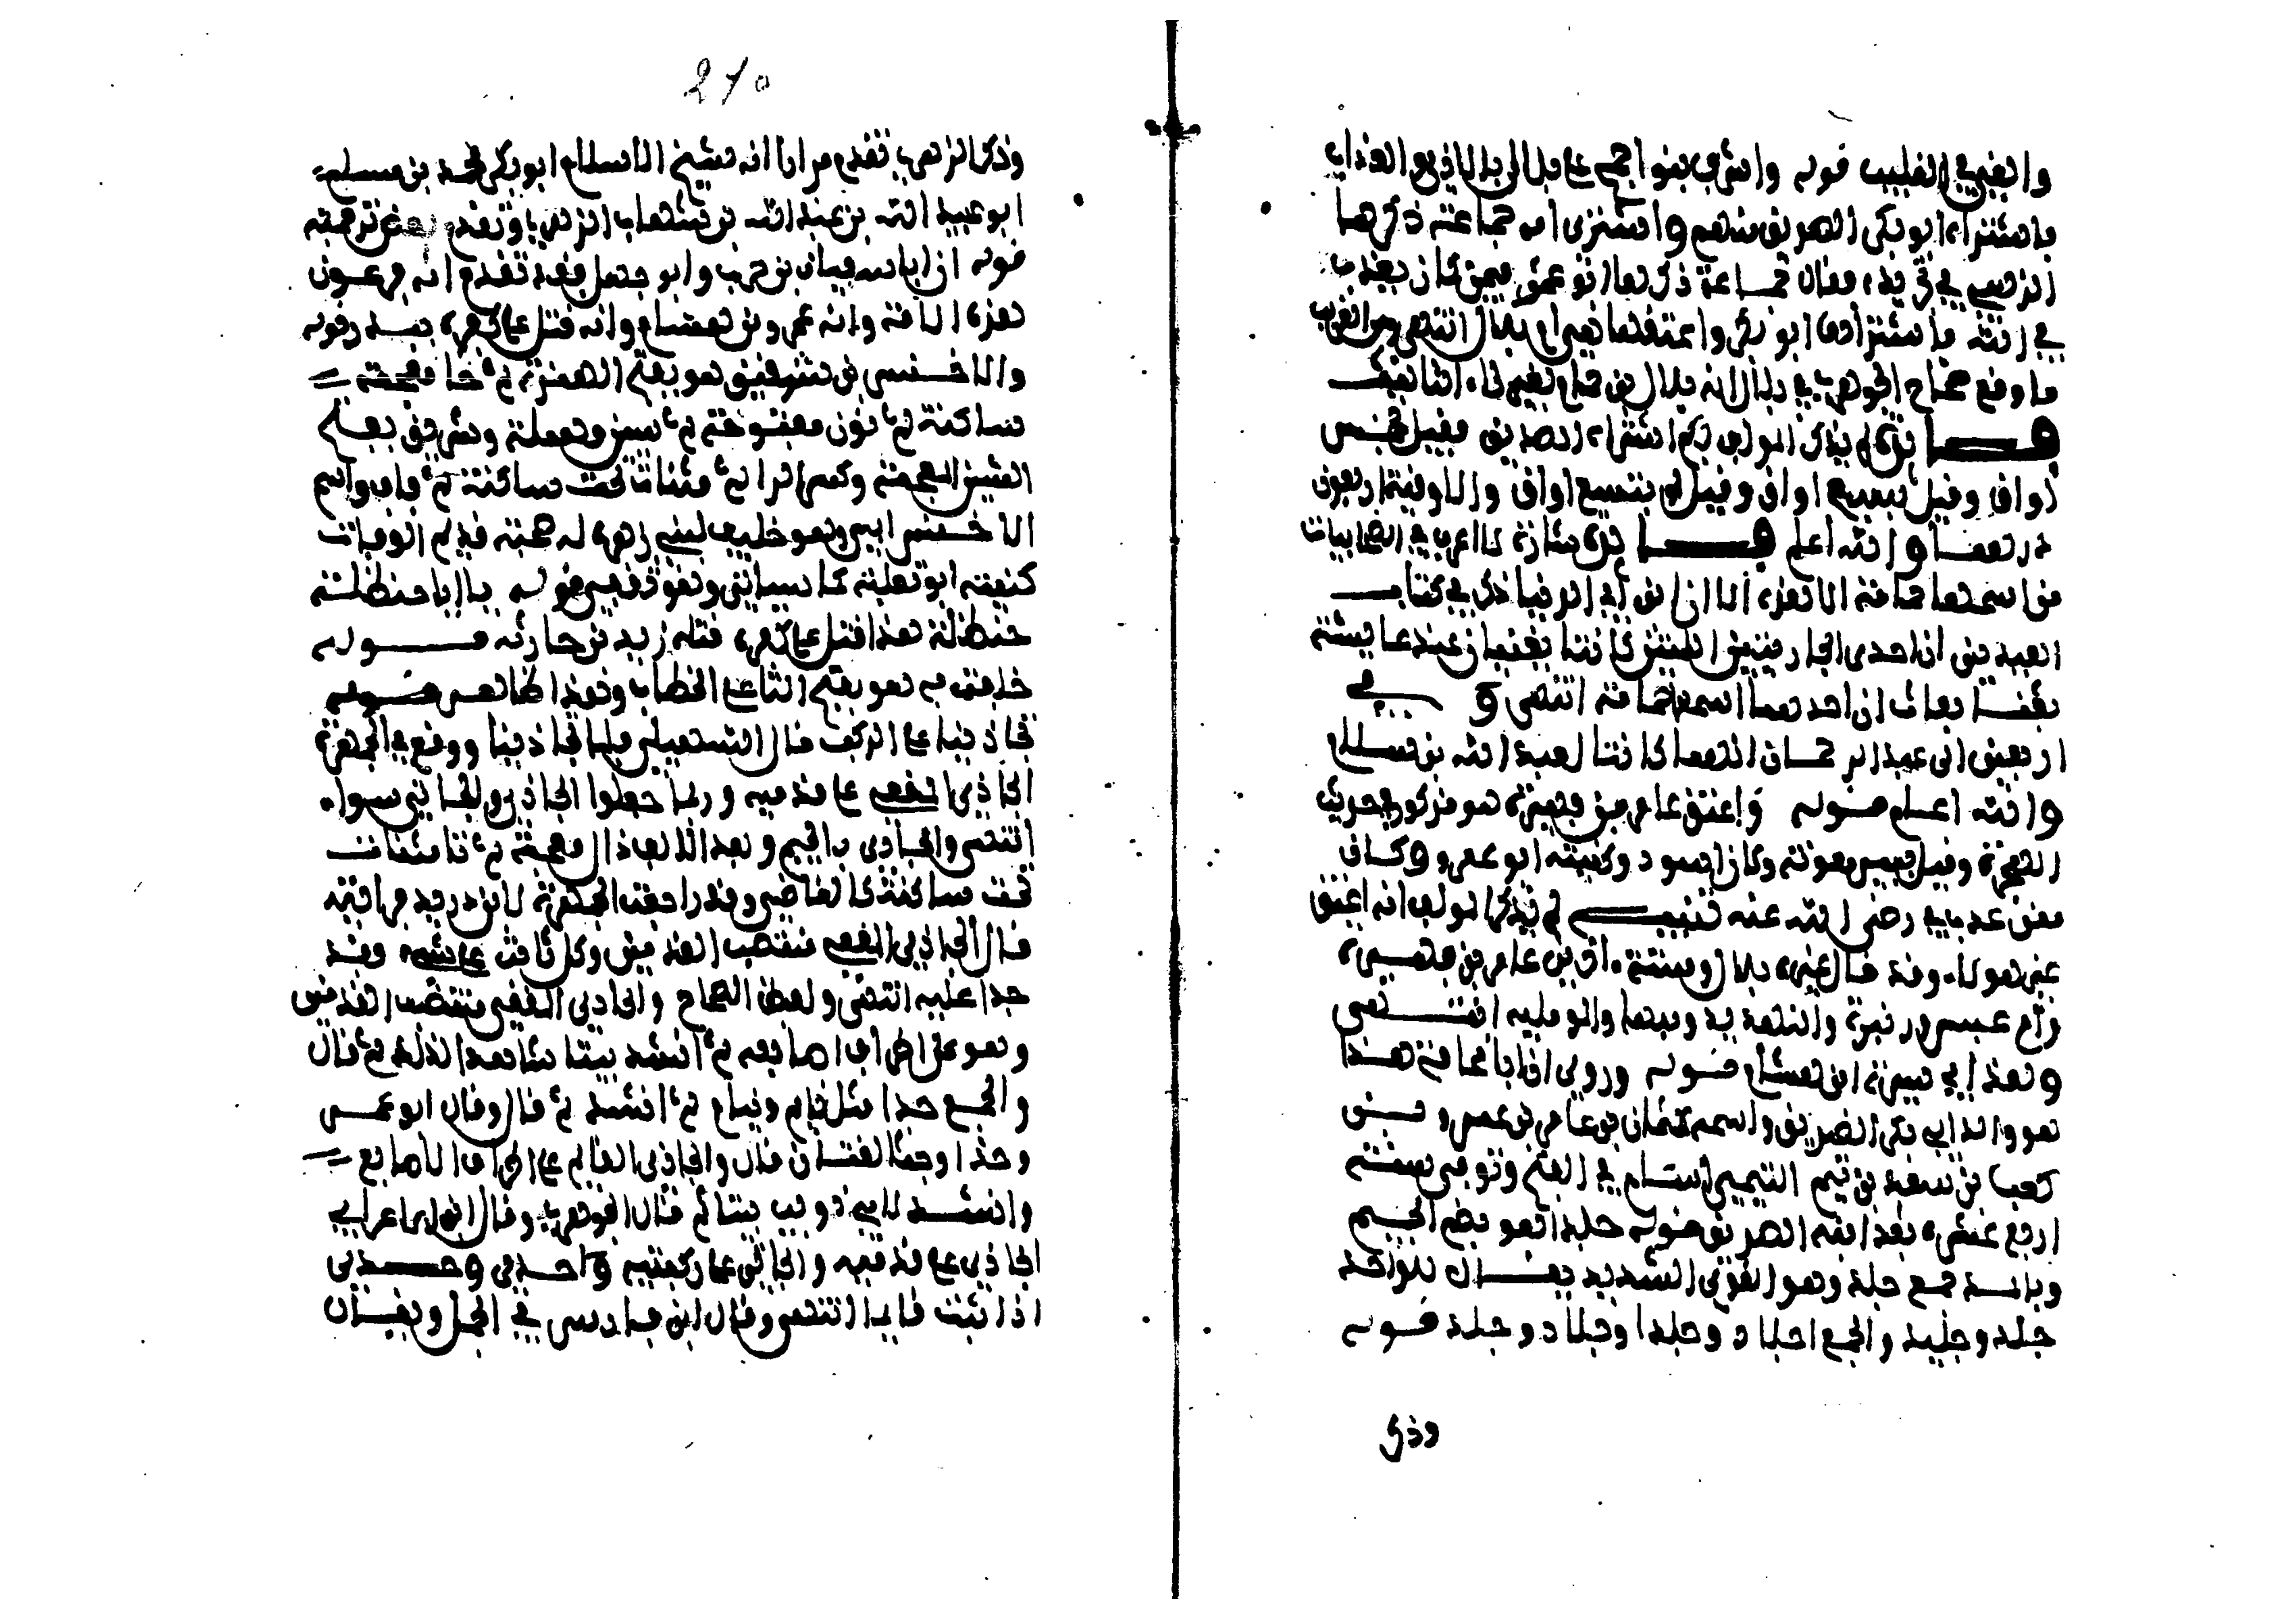 والقي في القليب قوله واشترى بنو جمح على بلال بالاذى والعذاب
فاشتراه ابو بكر الصديق منهم واشترى امه حمامة ذكرهما
الذهبي في تجريده فقال حمامة ذكرها ابو عمر فيمن كان يعذب
في الله فاشتراها ابو بكر واعتقها هي ام بلال انتهى
ما وقع صحاح الجوهري في بلال انه بلال بن حمام
لم يذكر المؤلف بكم اشتراه الصديق فقيل بخمس
اواق وقيل بسبع اواق وقيل له بتسع اواق والاوقية اربعون
درهما والله اعلم لا اعرف في الصحابيات
من اسمها حمامة الا هذه الا ان ابن ابي الدنيا ذكر في كتاب
العيدين ان احدى الجاريتين اللتين كانتا تغنيان عند عائشة
بغناء بعاث ان احدهما اسمها حمامة انتهى وفي
اربعين ابي عبد الرحمان انهما كانتا لعبد الله بن سلام
والله اعلم قوله واعتق عامر بن فهيرة هو مذكور في حديث
الهجرة وقيل ببير معونة وكان اسود وكنيته ابو عمرو وكان
ممن عذب في رضي الله عنه تنبيه لم يذكر المؤلف انه اعتق
غير هؤلاء وقد قال غيره بلال وستة اخرين عامر بن فهيرة
وام عبيس وزنيرة والنهدية وبنتها والمؤملية انتهى
وهذا في سيرة ابن هشام قوله وروى ان ابا قحافة هذا
هو والد ابي بكر الصديق واسمه عثمان بن عامر بن عمرو بن
كعب بن سعد بن تيم التيمي اسلم في الفتح وتوفي سنة
اربع عشرة بعد ابنه الصديق قوله جلدا هو بضم الجيم
وبالمد جمع جلد وهو القوي الشديد يقال للواحد
جلد وجليد والجمع اجلاد وجلدا وجلاد وجلد قوله
وذكر
210
وذكر الزهري تقدم مرارا انه شيخ الاسلام ابو بكر محمد بن مسلم
ابو عبيد الله بن عبد الله بن شهاب الزهري وتقدم بعض ترجمته
قوله ان ابا سفيان بن حرب وابو جهل فقد تقدم انه فرعون
هذه الامة وانه عمرو بن هشام وانه قتل على كفره ببدر قوله
والاخنس بن شريق هو بفتح الهمزة ثم خا معجمة
ساكنة ثم نون مفتوحة ثم سين مهملة وشريق بفتح
الشين المعجمة وكسر الرا ثم مثناة تحت ساكنة ثم قاف واسم
الاخنس ابي وهو حليف لبني زهرة له صحبة قديم الوفات
كنيته ابو ثعلبة كما سياتي وهو ثقفي قوله يا ابا حنظلة
حنظلة هذا قتل على كفره قتله زيد بن حارثة قوله
خلافت به هو بفتح التا على الخطاب وهذا ظاهر قوله
تجاذينا على الركب قال السهيلي فلما تجاذينا ووقع في الجمهرة
الجاذي المقعي على قدميه وربما جعلوا الجاذي والجاثي سواء
انتهى والجاذي بالجيم وبعد الالف ذال معجمة ثم يا مثنات
تحت ساكنة كالقاضي وقد راجعت الجمهرة لابن دريد فرايته
قال الجاذي المقعي منتصب القدمين وكل ثابت على شيء فقد
جذا عليه انتهى ولفظ الصحاح والجاذي المقعي منتصب القدمين
وهو على اطراف اصابعه ثم انشد بيتا شاهدا لذلك ثم قال
والجمع جذا مثل نايم ونيام ثم انشد ثم قال وقال ابو عمرو
وجذا وجثا لغتان قال والجاذي القايم على اطراف الاصابع
وانشد لابي ذويب بيتا ثم قال الجوهري وقال ابن الاعرابي
الجاذي على قدميه والجاثي على ركبتيه واجذى وجذى
اذا ثبت قايما انتهى وقال ابن فارس في المجمل ويقال